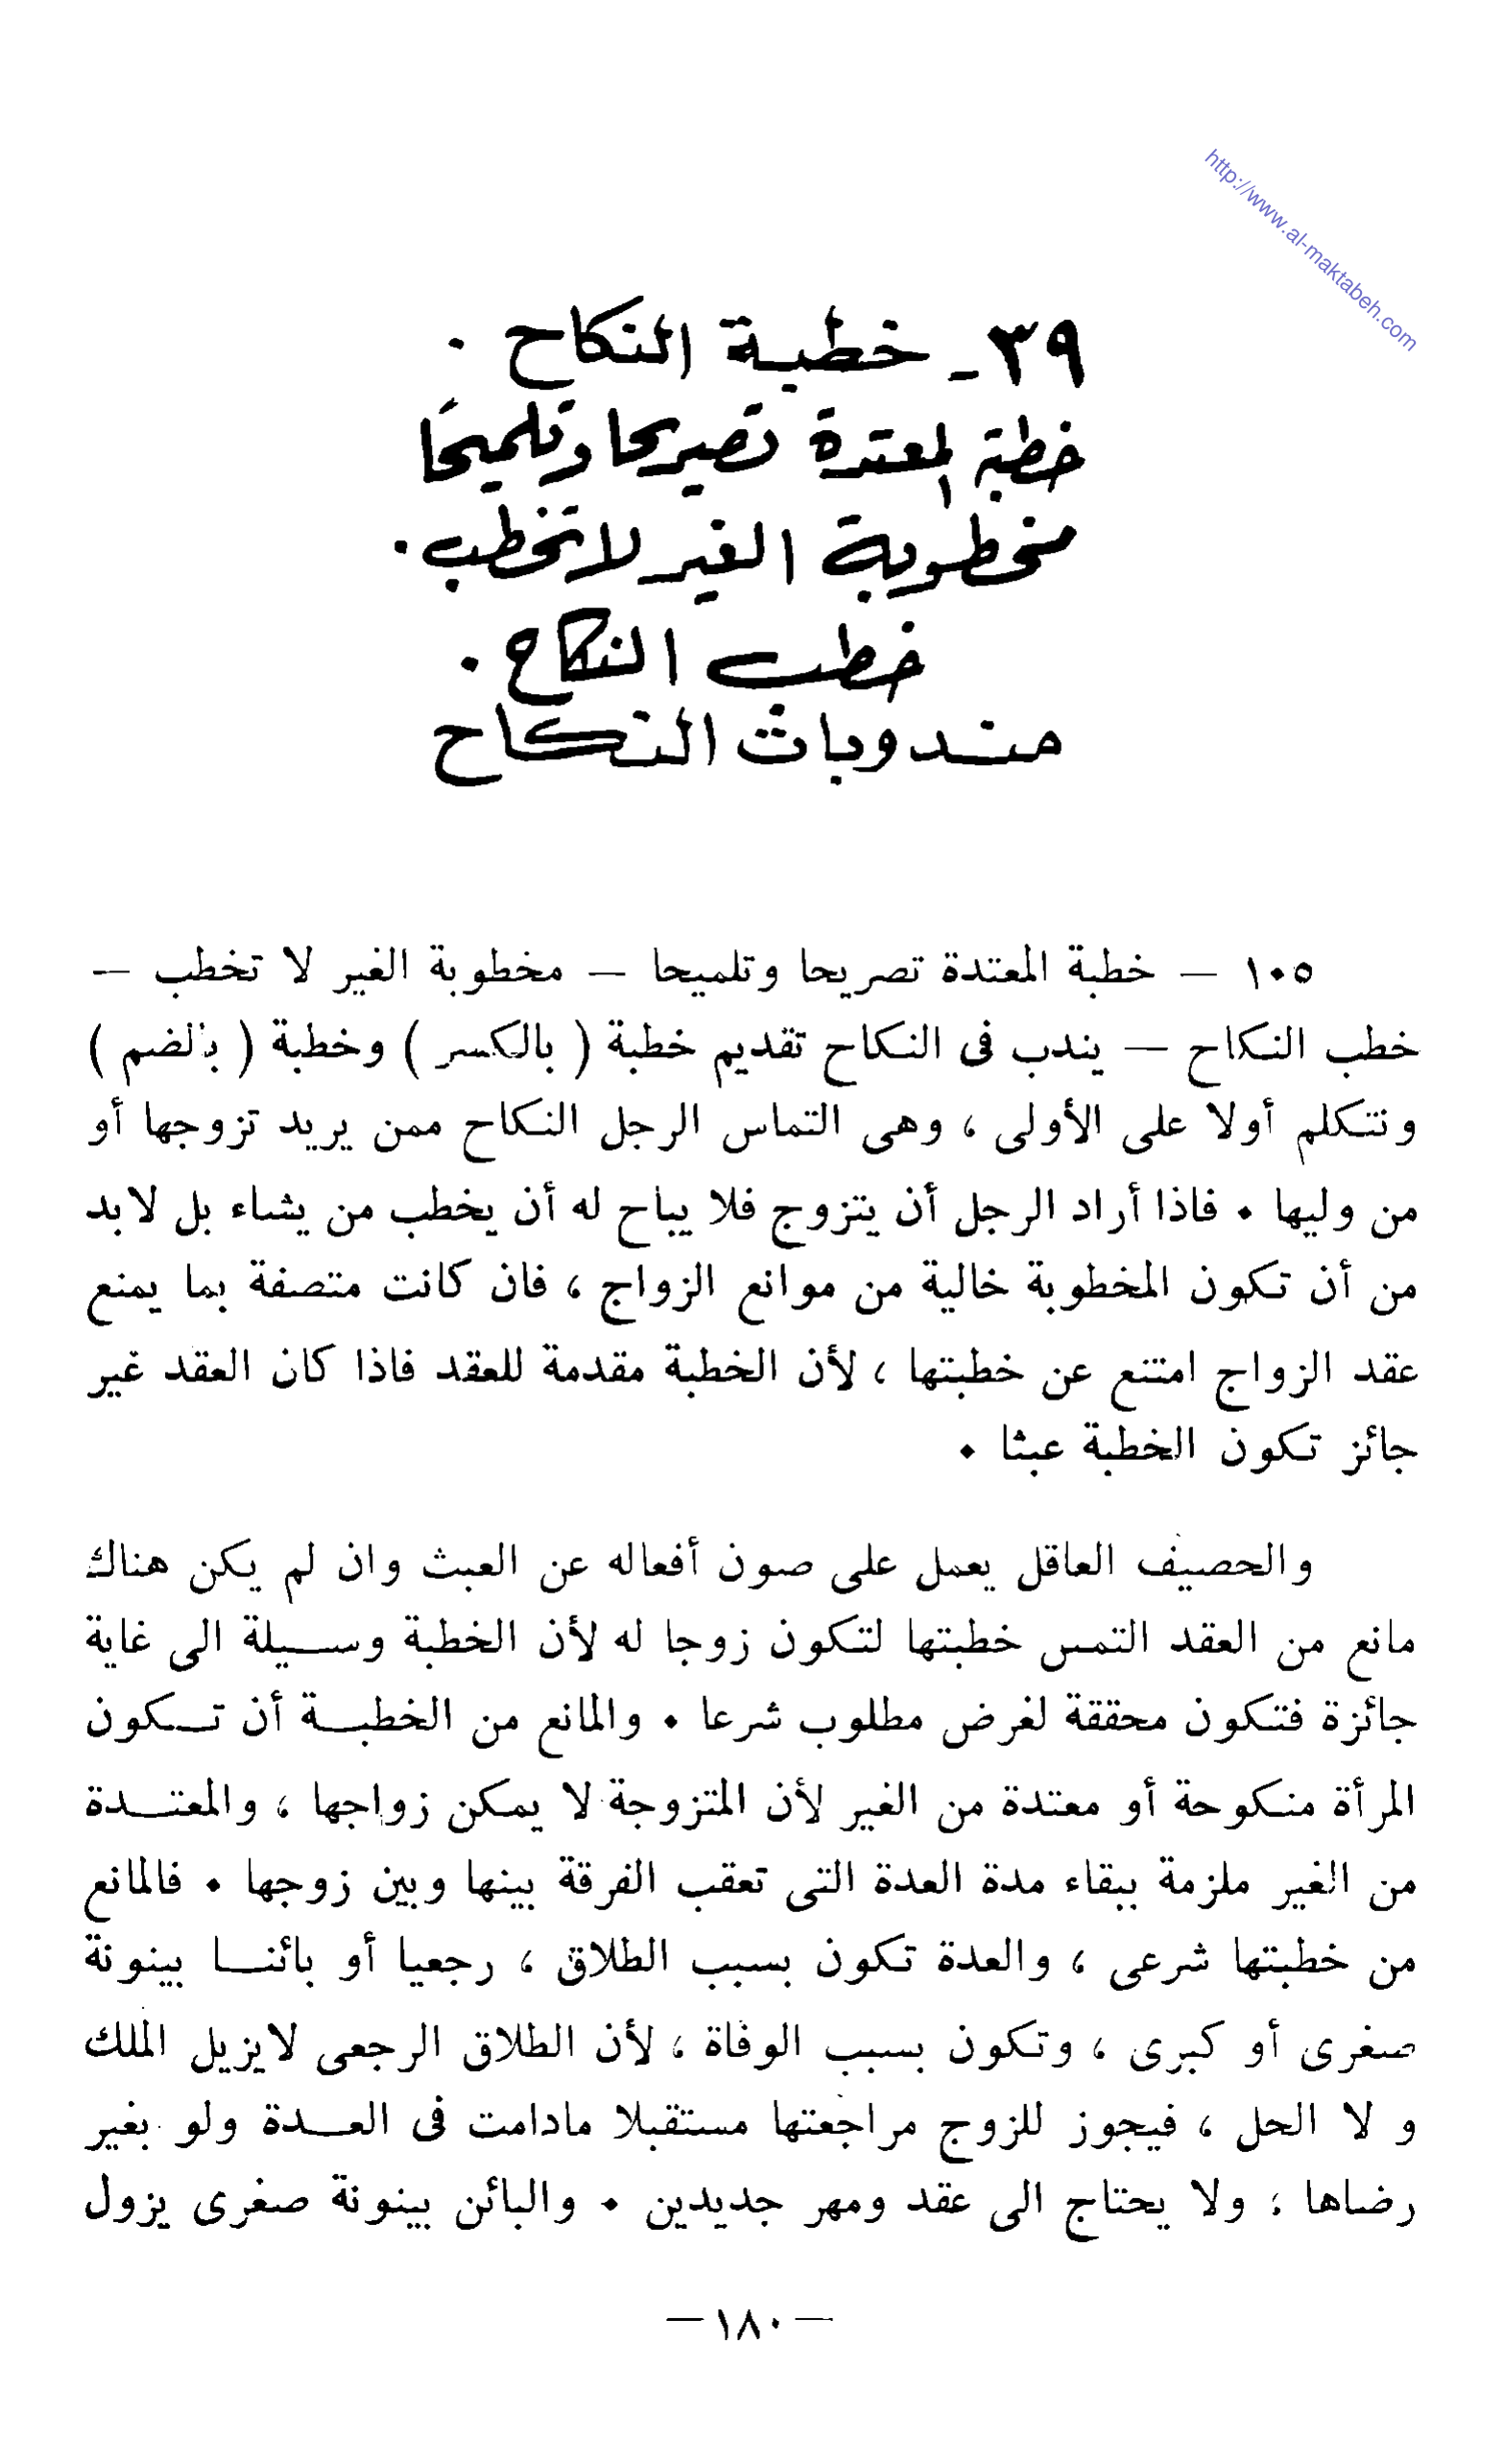 http://www.al-maktabeh.com
٣٩ - خطبة النكاح .
خطبة المعتدة تصريحا وتلميحًا
مخطوبة الغير لا تخطب .
خطب النكاح .
مندوبات النكاح
١٠٥ — خطبة المعتدة تصريحا وتلميحا — مخطوبة الغير لا تخطب —
خطب النكاح — يندب فى النكاح تقديم خطبة ( بالكسر ) وخطبة ( بالضم )
ونتكلم أولا على الأولى ، وهى التماس الرجل النكاح ممن يريد تزوجها أو
من وليها . فاذا أراد الرجل أن يتزوج فلا يباح له أن يخطب من يشاء بل لابد
من أن تكون المخطوبة خالية من موانع الزواج ، فان كانت متصفة بما يمنع
عقد الزواج امتنع عن خطبتها ، لأن الخطبة مقدمة للعقد فاذا كان العقد غير
جائز تكون الخطبة عبثا .
والحصيف العاقل يعمل على صون أفعاله عن العبث وان لم يكن هناك
مانع من العقد التمس خطبتها لتكون زوجا له لأن الخطبة وسيلة الى غاية
جائزة فتكون محققة لغرض مطلوب شرعا . والمانع من الخطبة أن تكون
المرأة منكوحة أو معتدة من الغير لأن المتزوجة لا يمكن زواجها ، والمعتدة
من الغير ملزمة ببقاء مدة العدة التى تعقب الفرقة بينها وبين زوجها . فالمانع
من خطبتها شرعى ، والعدة تكون بسبب الطلاق ، رجعيا أو بائنا بينونة
صغرى أو كبرى ، وتكون بسبب الوفاة ، لأن الطلاق الرجعى لايزيل الملك
و لا الحل ، فيجوز للزوج مراجعتها مستقبلا مادامت فى العدة ولو بغير
رضاها ؛ ولا يحتاج الى عقد ومهر جديدين . والبائن بينونة صغرى يزول
— ١٨٠ —